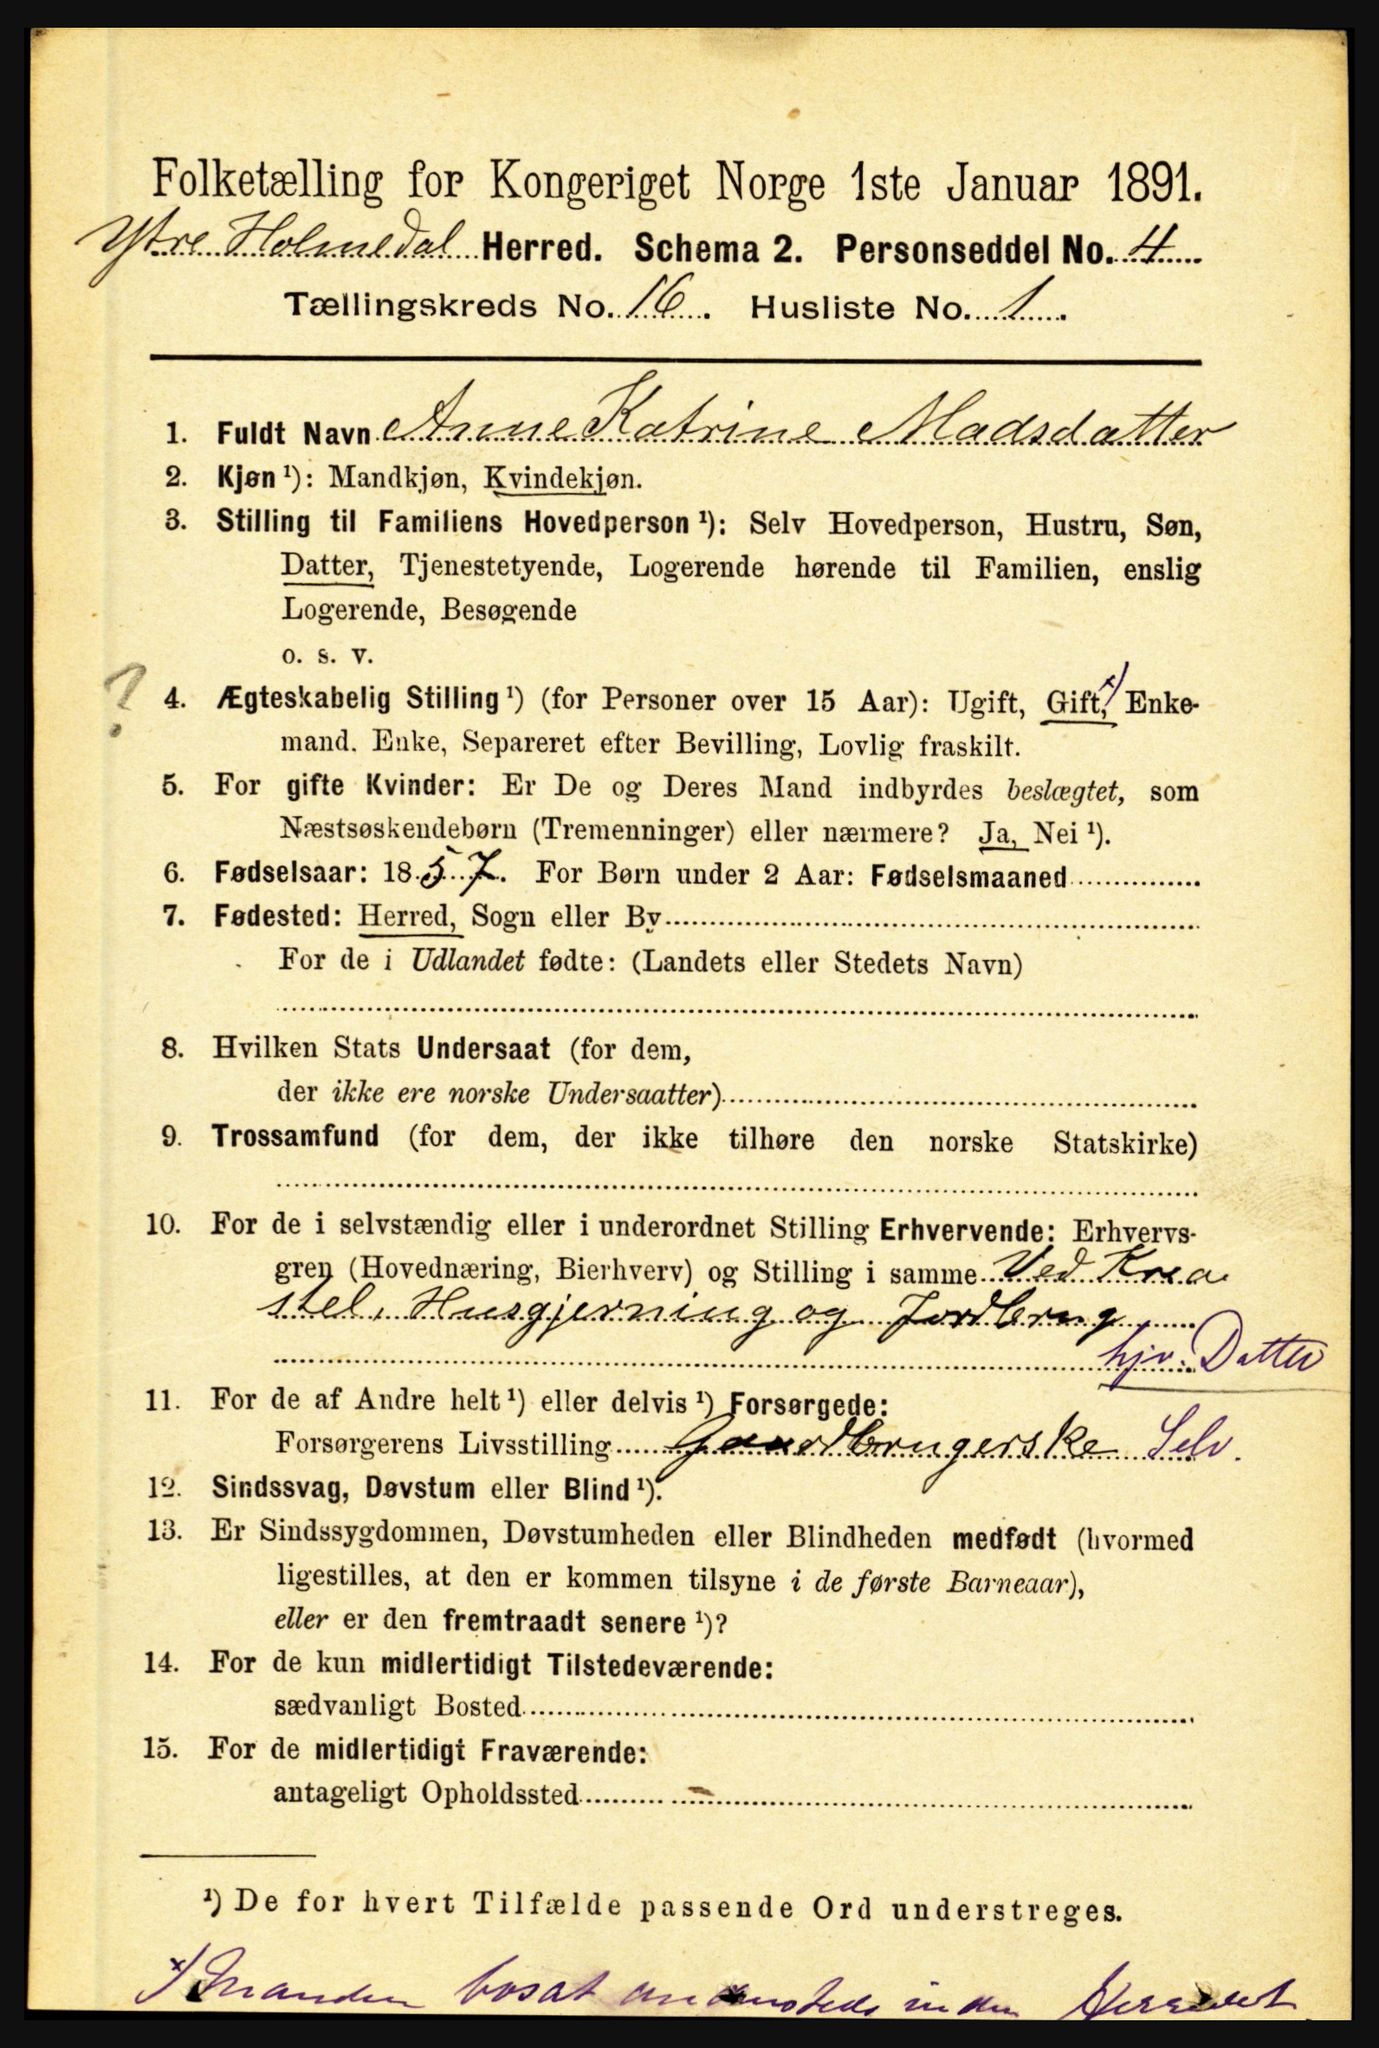 Folketælling for Kongeriget Norge 1ste Januar 1891.
Ytre Holmedal Herred. Schema 2. Personseddel No. 4
Tællingskreds No. 16. Husliste No. 1.
1. Fuldt Navn Anne Katrine Madsdatter
2. Kjøn ¹): Mandkjøn, Kvindekjøn.
3. Stilling til Familiens Hovedperson ¹): Selv Hovedperson, Hustru, Søn,
Datter, Tjenestetyende, Logerende hørende til Familien, enslig
Logerende, Besøgende
o. s. v.
? 4. Ægteskabelig Stilling ¹) (for Personer over 15 Aar): Ugift, Gift, ×) Enke-
mand, Enke, Separeret efter Bevilling, Lovlig fraskilt.
5. For gifte Kvinder: Er De og Deres Mand indbyrdes beslægtet, som
Næstsøskendebørn (Tremenninger) eller nærmere? Ja, Nei ¹).
6. Fødselsaar: 1857. For Børn under 2 Aar: Fødselsmaaned
7. Fødested: Herred, Sogn eller By
For de i Udlandet fødte: (Landets eller Stedets Navn)
8. Hvilken Stats Undersaat (for dem,
der ikke ere norske Undersaatter)
9. Trossamfund (for dem, der ikke tilhøre den norske Statskirke)
10. For de i selvstændig eller i underordnet Stilling Erhvervende: Erhvervs-
gren (Hovednæring, Bierhverv) og Stilling i samme Ved Krea
stel, Husgjerning og Jordbrug
hjv. Datter
11. For de af Andre helt ¹) eller delvis ¹) Forsørgede:
Forsørgerens Livsstilling Gaardbrugerske Selv.
12. Sindssvag, Døvstum eller Blind ¹).
13. Er Sindssygdommen, Døvstumheden eller Blindheden medfødt (hvormed
ligestilles, at den er kommen tilsyne i de første Barneaar),
eller er den fremtraadt senere ¹)?
14. For de kun midlertidigt Tilstedeværende:
sædvanligt Bosted
15. For de midlertidigt Fraværende:
antageligt Opholdssted
¹) De for hvert Tilfælde passende Ord understreges.
×) Manden bosat andensteds inden Herredet.